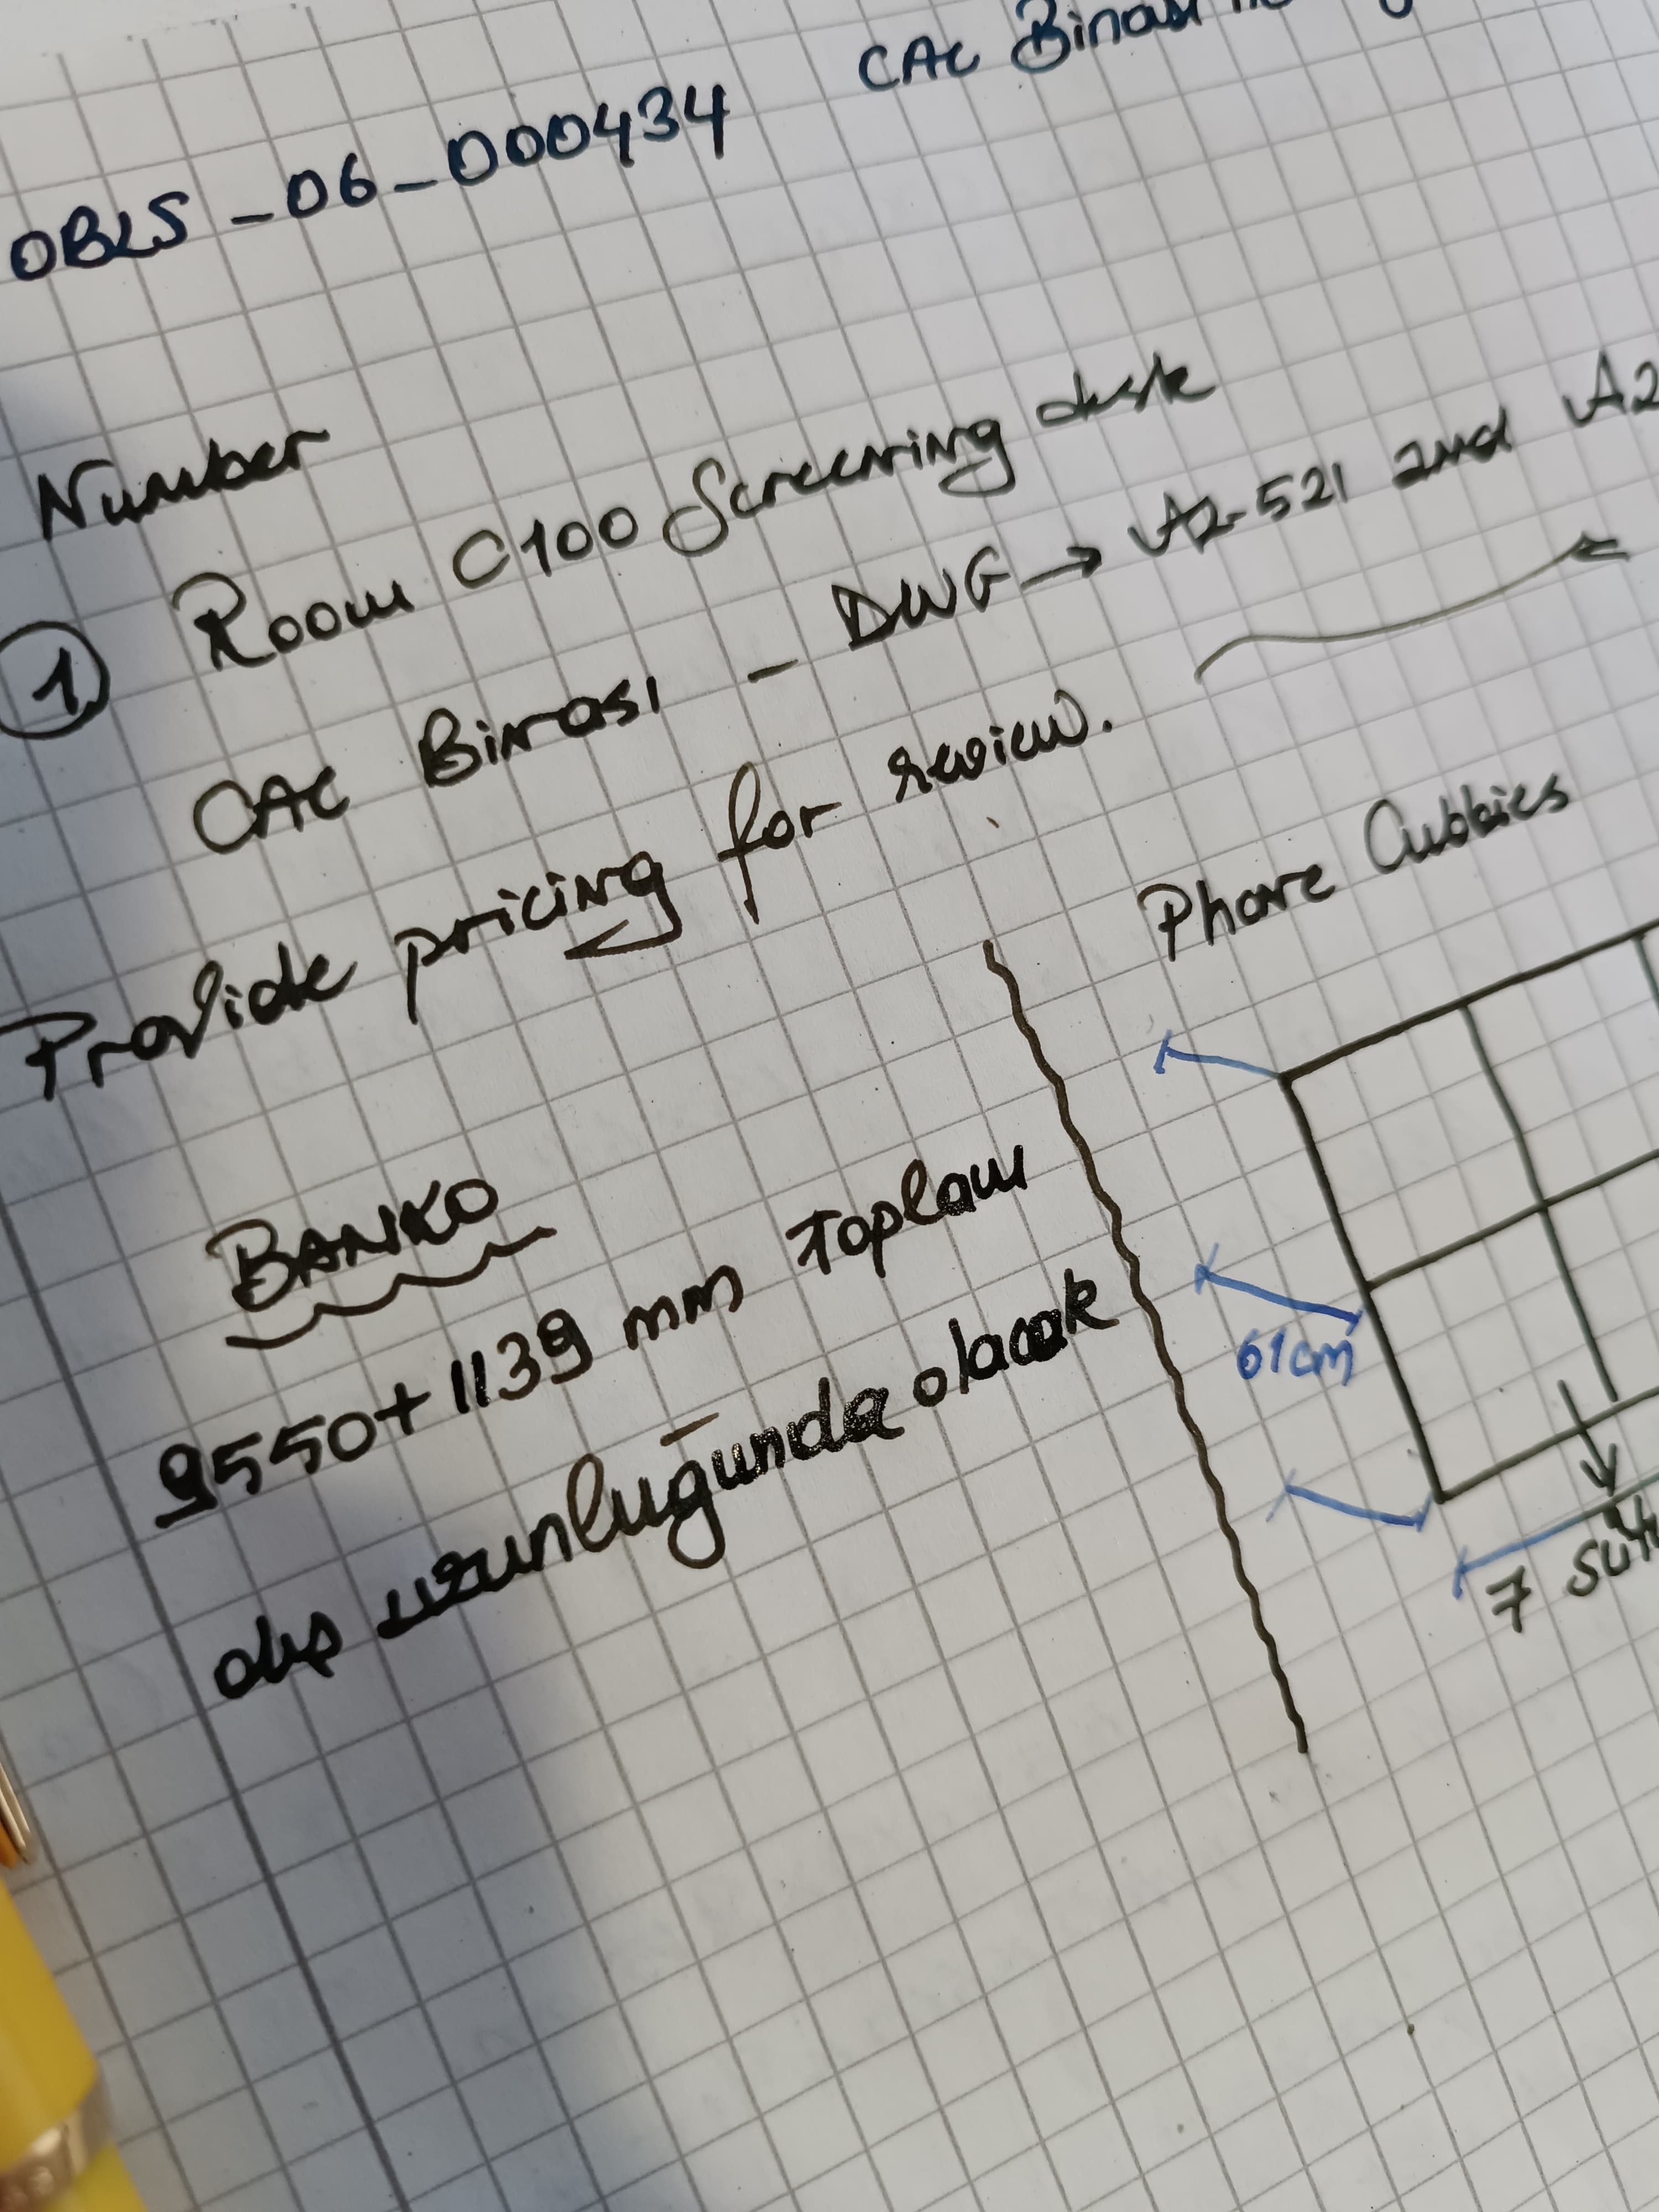 CAC Binası
OBLS-06-000434
Number
1 Room C100 Screening desk
CAC Binası - DWG → A2-521 and A2
Provide pricing for review.
Phone Cubbies
BANKO
9550+1139 mm Toplam
dış uzunluğunda olacak
61cm
7